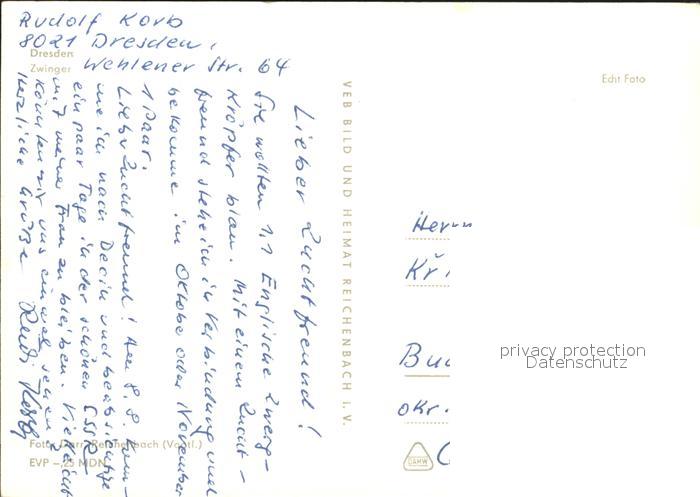 Rudolf Korb
8021 Dresden,
Wehlener Str. 64
Dresden
Zwinger
Lieber Zuchtfreund!
Sie wollten 1,1 Englische Zwerg-
Kröpfer blau. Mit einem Zucht-
freund stehe ich in Verbindung und
bekomme im Oktober oder November
1 Paar.
Lieber Zuchtfreund! Am 8.8. komme
ich nach Decin und beabsichtige
ein paar Tage in der schönen CSSR
mit meiner Frau zu bleiben. Vielleicht
könnten wir uns einmal sehen?
Herzliche Grüße
VEB BILD UND HEIMAT REICHENBACH i. V.
Echt Foto
Herrn
Kř
Buc
okr.
privacy protection
Datenschutz
DAMW
Foto: Darr, Reichenbach (Vogtl.)
EVP –,25 MDN